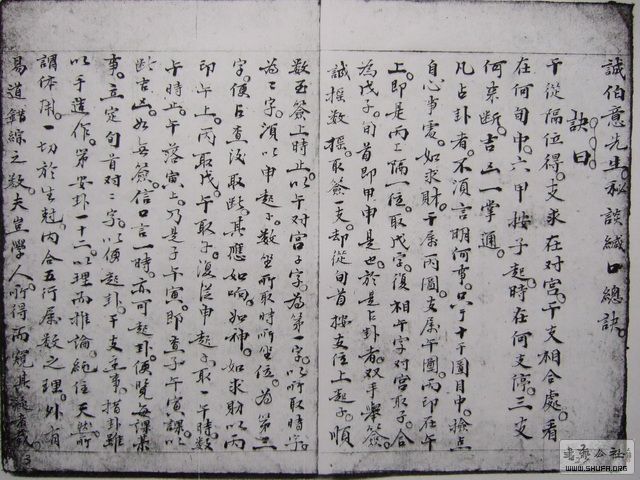 誠伯意先生秘談緘口總訣
訣曰
干從隔位得。支求在对宮。干支相合處。看
在何旬中。六甲按子起。時在何支停。三支
何來断。吉凶一掌通。
凡占卦者。不須言明何事。只于十干圖目中。撿点
自心事處。如求財。干属丙圖。支属午圖。丙印在午
上。即是丙上隔一位。取戊字。復相午字对宮取子。合
為戊子。旬首即甲申是也。於是占卦者。双手舉簽。
誠搖数搖。取簽一支。却從旬首按支位上起子。順
数至簽上時止。以午对宮子字。為第一字。以所取時字。
為二字。須以申起子。数至所取時所坐位。為第三
字。便占查後取断。其應如响如神。如求財以丙
印午上。丙取戊。午取子。復從申起子取一午時。数
午時止。午落寅上。乃是子午寅。即查子午寅課。以
断吉凶。如每簽。信口言一時。亦可起卦。便覽每課某
事。立定句首对二字。以便起卦。干支逐事。指卦雖
以手造作。第安卦一十二。以理而推論。純任天然所
調体用。一切於生尅。内合五行属数之理。外有
易道錯綜之数。夫豈學人所得而窺其